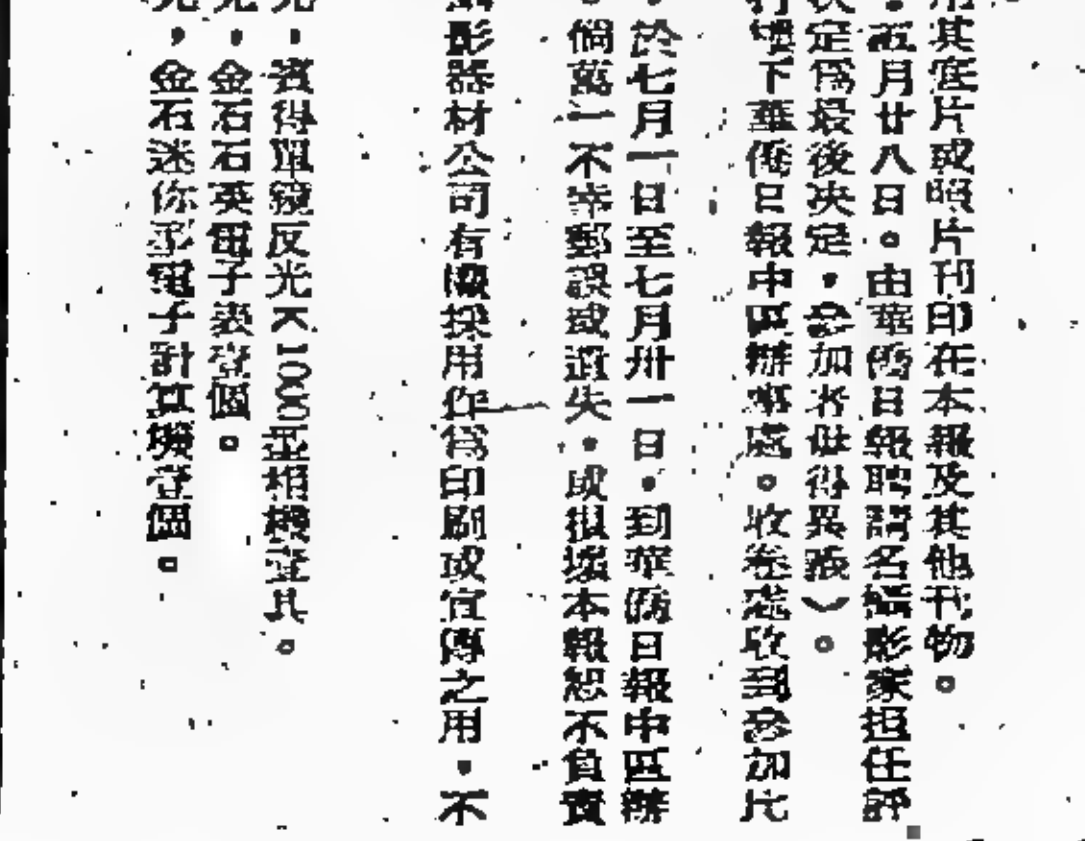 用其底片或照片刊印在本報及其他刊物。
。五月廿八日。由華僑日報聘請名攝影家担任評
決定為最後決定,參加者毋得異議)。
下華僑日報中區辦事處。收卷處收到參加比
,於七月一日至七月卅一日,到華僑日報中區辦
。倘萬一不幸郵誤或遺失,或損壞本報恕不負責
影器材公司有權採用作為印刷或宣傳之用,不
元,賓得單鏡反光K1000型相機壹具。
元,金石石英電子表壹個。
元,金石迷你型電子計算機壹個。